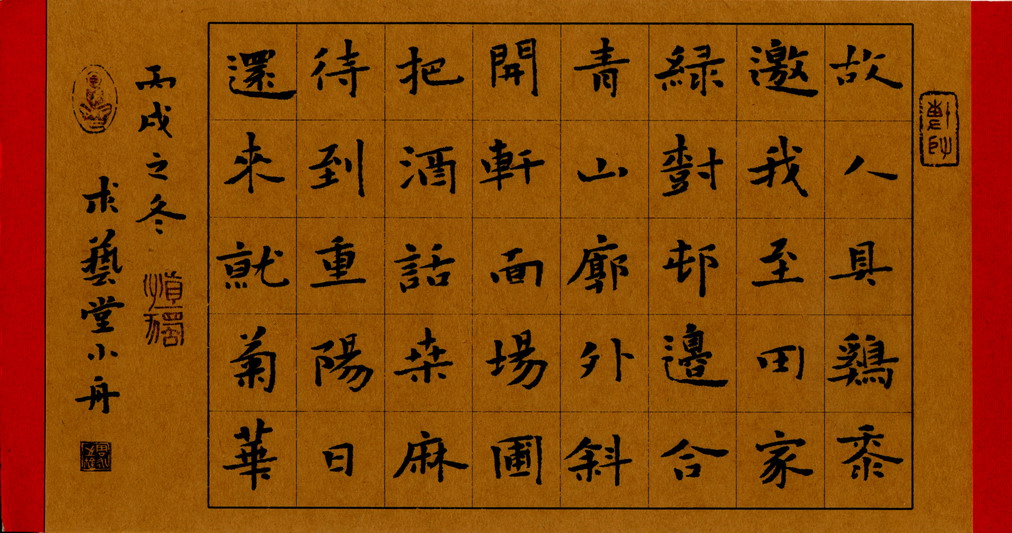 故人具鷄黍
邀我至田家
緑樹邨邊合
青山廓外斜
開軒面場圃
把酒話桒麻
待到重陽日
還來就菊華
丙戌之冬
慎獨
求藝堂小舟